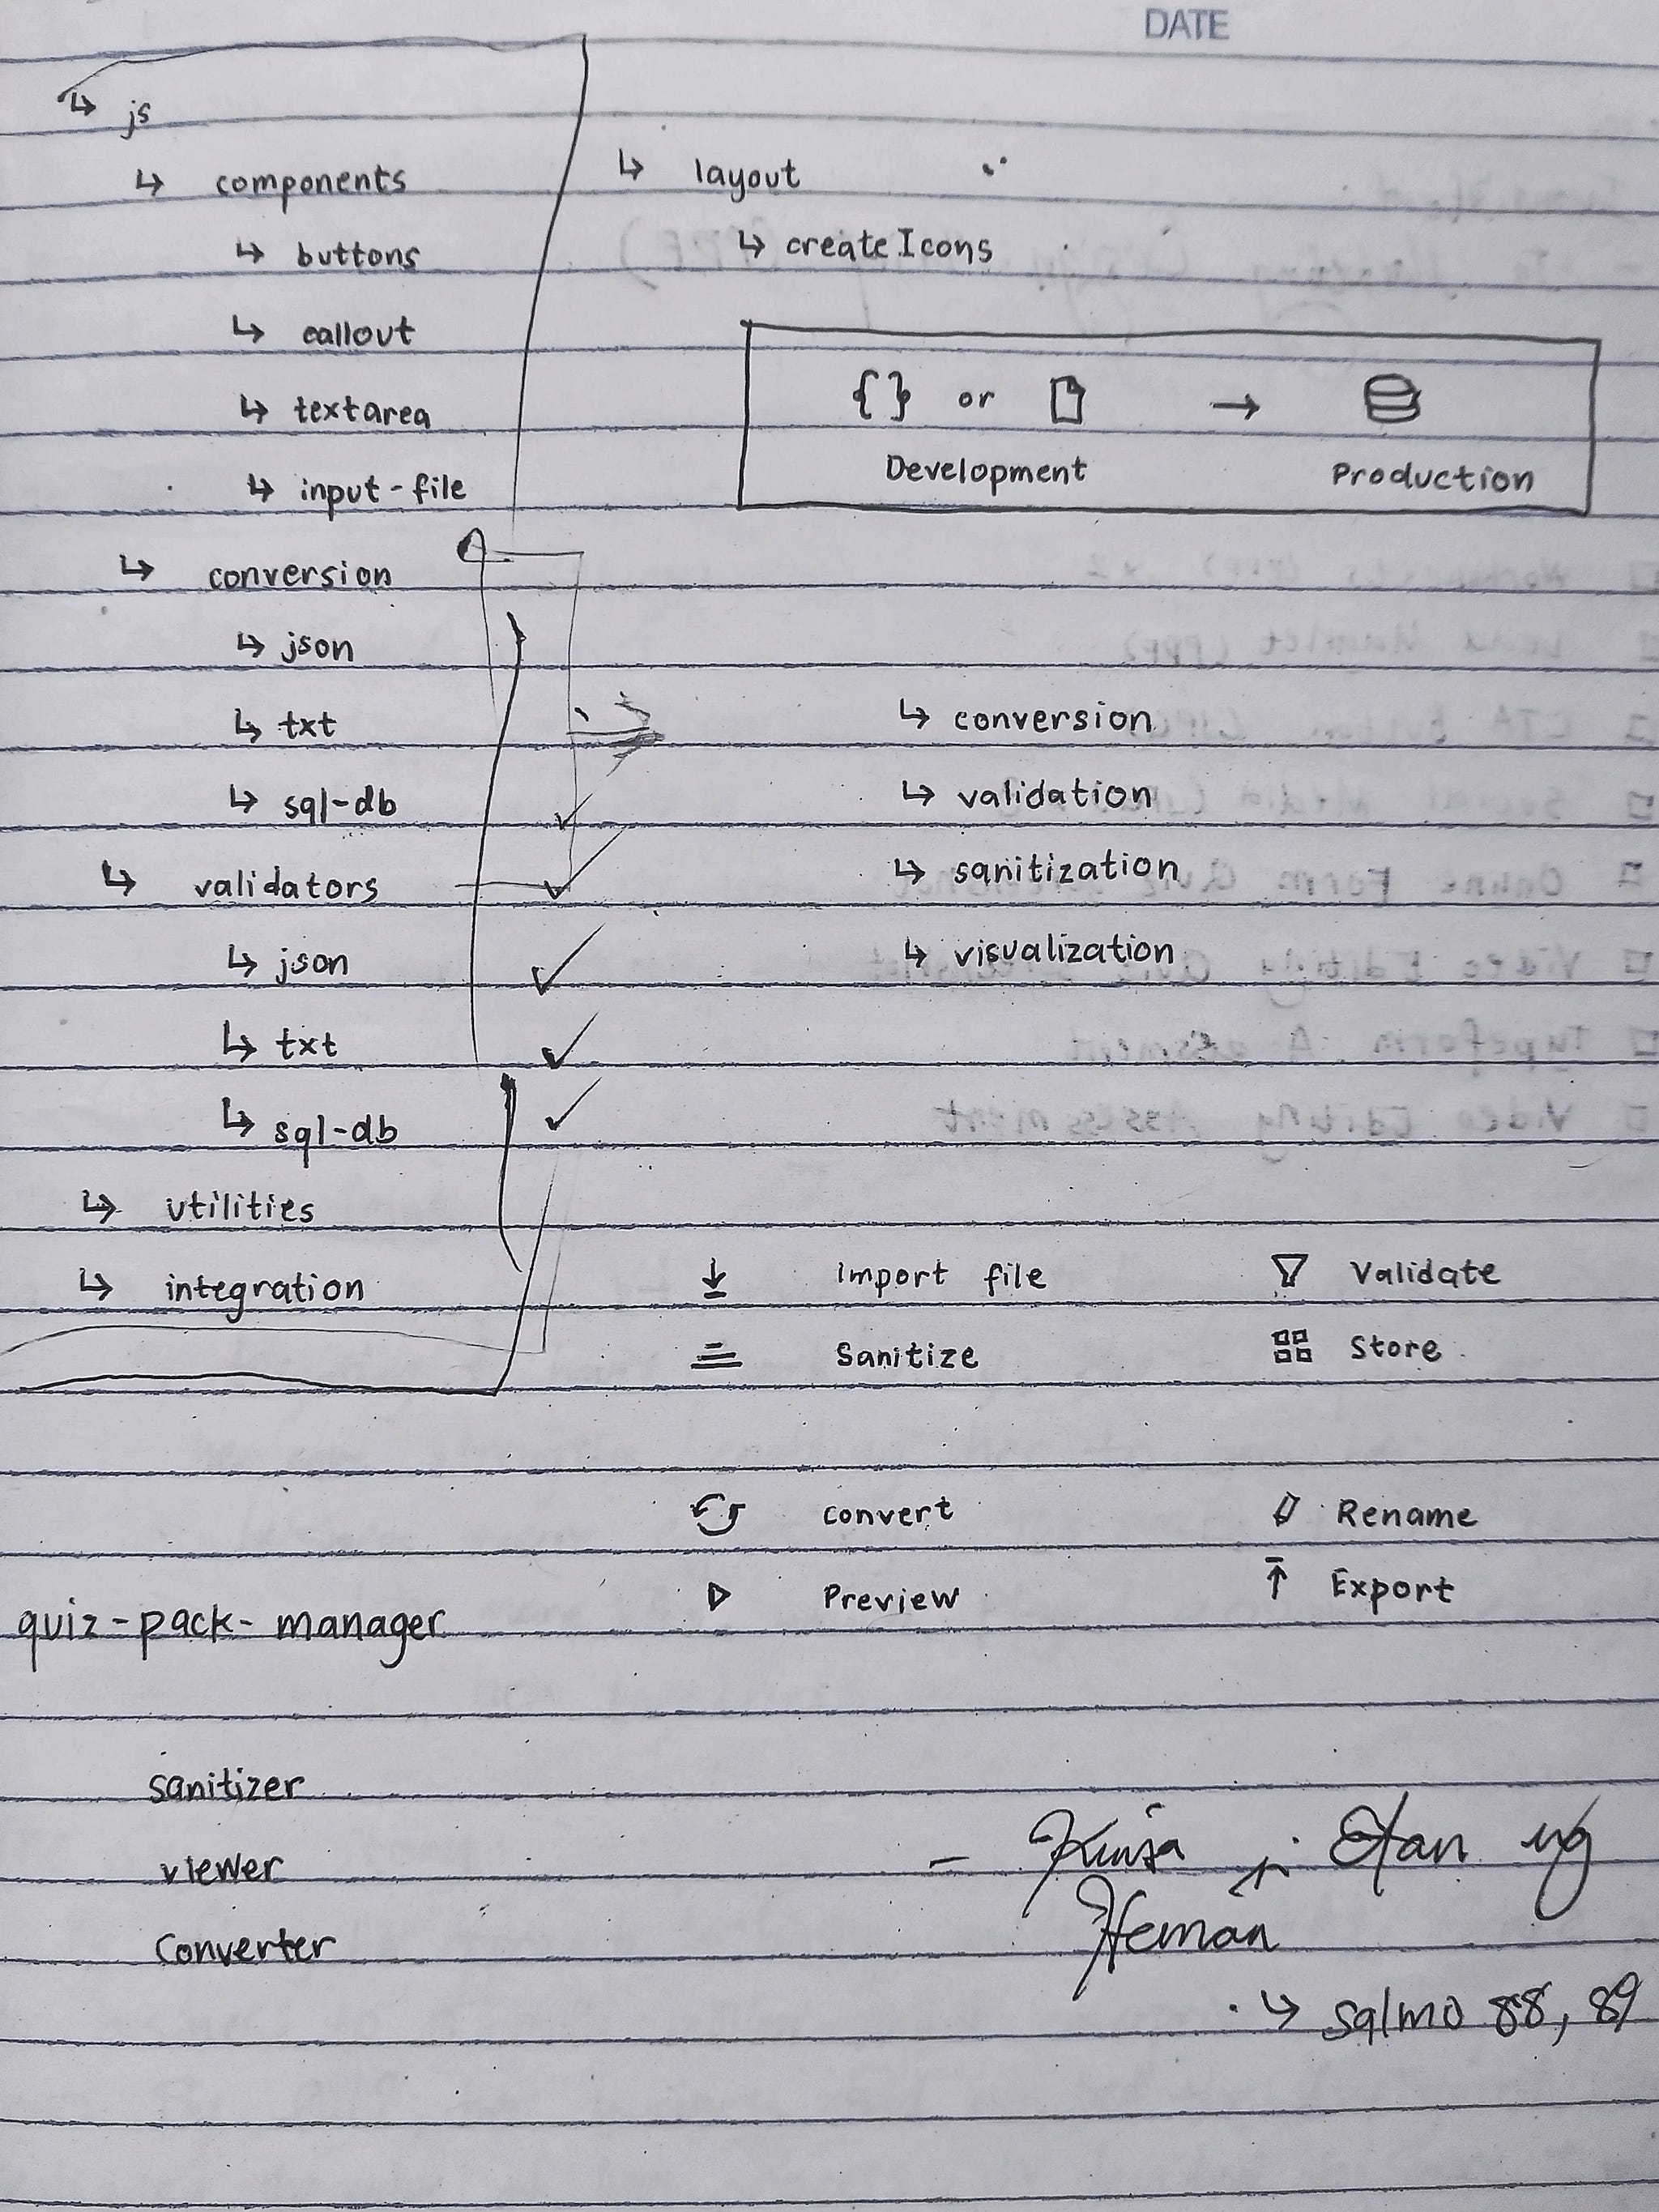 DATE
↳ js
↳ components
↳ buttons
↳ callout
↳ textarea
↳ input-file
↳ conversion
↳ json
↳ txt
↳ sql-db
↳ validators
↳ json
↳ txt
↳ sql-db
↳ utilities
↳ integration
↳ layout
↳ createIcons
{ } or →
Development Production
↳ conversion
↳ validation
↳ sanitization
↳ visualization
Import file Validate
Sanitize Store
convert Rename
Preview Export
quiz-pack-manager
sanitizer
viewer
Converter
Heman
↳ salmo 88, 89